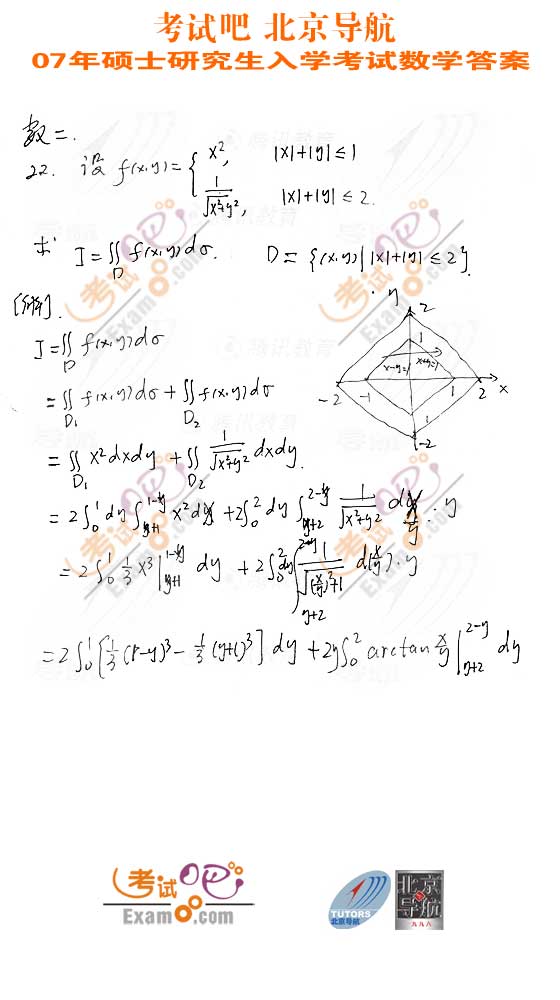 考试吧 北京导航
07年硕士研究生入学考试数学答案
数二.
22. 设 f(x,y)= { x², |x|+|y|≤1
1/√x²+y², |x|+|y|≤2.
求 I=∬_D f(x,y)dσ. D={(x,y)| |x|+|y|≤2}.
[解].
y
2
1
x+y=1
-2 -1 1 2 x
1
-2
I=∬_D f(x,y)dσ
=∬_D₁ f(x,y)dσ+∬_D₂ f(x,y)dσ
=∬_D₁ x²dxdy+∬_D₂ 1/√x²+y² dxdy.
=2∫₀¹ dy∫_{y+1}^{1-y} x²dx+2∫₀² dy∫_{y+2}^{2-y} 1/√x²+y² d x/y · y
=2∫₀¹ 1/3 x³|_{y+1}^{1-y} dy + 2∫₀² dy∫_{y+2}^{2-y} 1/√(x/y)²+1 d(x/y)·y
=2∫₀¹[1/3(1-y)³-1/3(y+1)³]dy+2y∫₀² arctan x/y|_{y+2}^{2-y} dy
考试吧
Exam8.com
TUTORS
北京导航
北京
导航
九九八